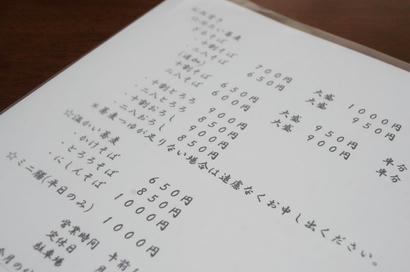 ☆冷たい蕎麦
・もりそば
・十割そば 700円 大盛 1000円
・二八そば 650円 大盛 950円
(追加)
・十割そば 650円 大盛 950円 半分
二八そば 600円 大盛 900円 半分
・十割とろろ 900円
・二八とろろ 850円
・十割おろし 900円
・二八おろし 850円
※蕎麦つゆが足りない場合は遠慮なくお申し出ください。
☆温かい蕎麦
・かけそば 650円
・とろろそば 850円
・にしんそば 1000円
☆ミニ膳(平日のみ) 1000円
営業時間 午前
定休日 月
駐車場